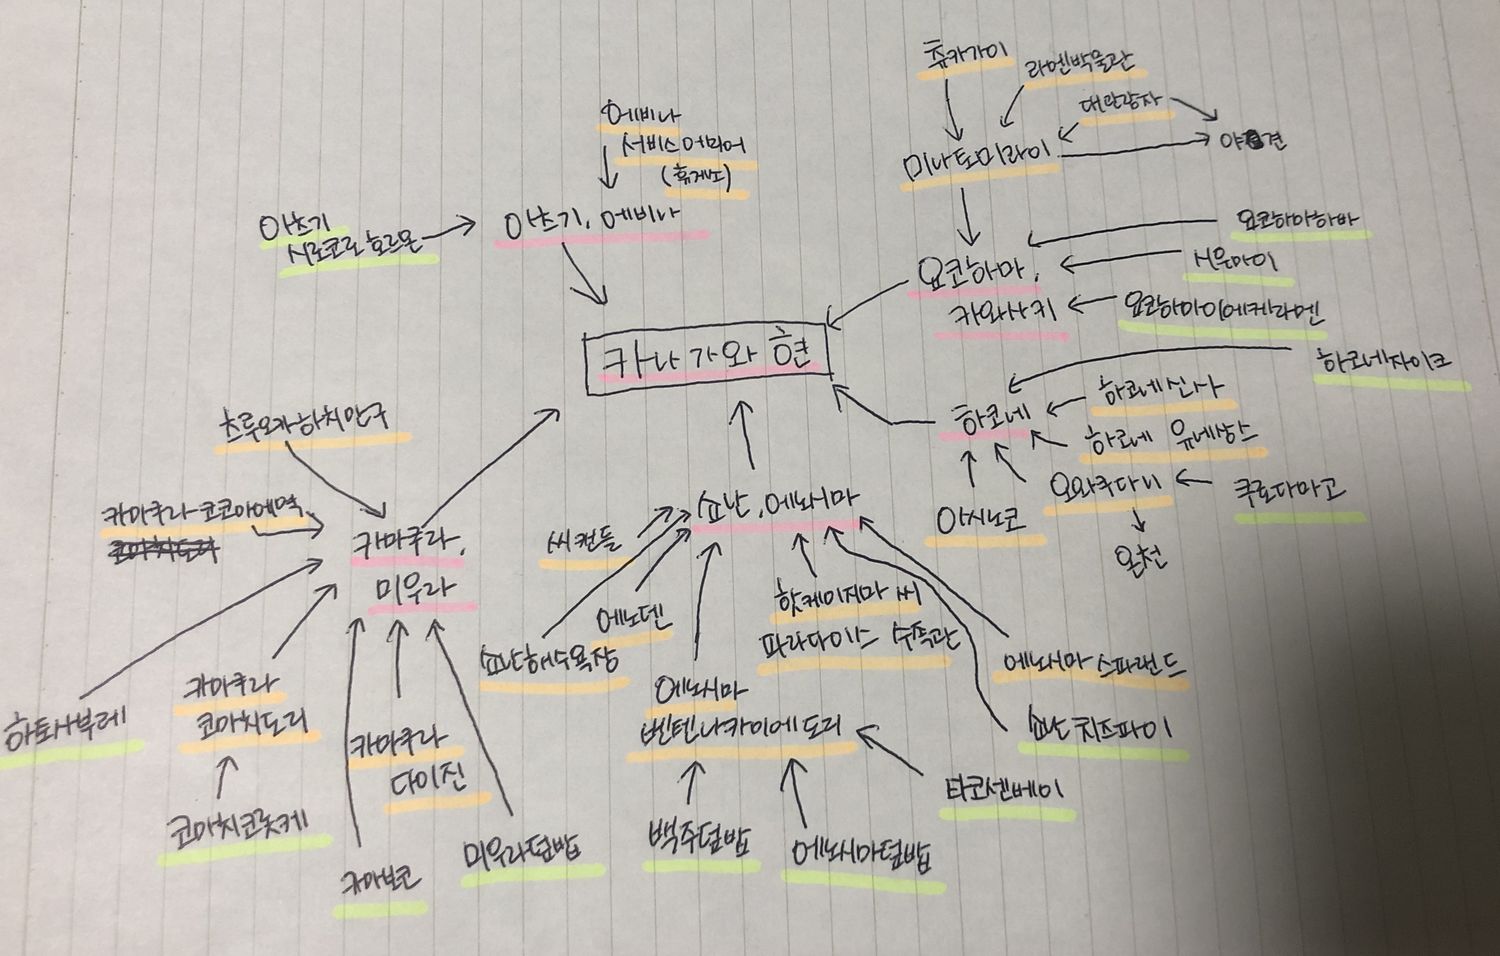 츄카가이
라멘박물관
대관람차
미나토미라이
에비나
서비스에리어
(휴게소)
아츠기
시로코로 호르몬
아츠기, 에비나
요코하마,
카와사키
요코하마하바
슈마이
요코하마이에케라멘
카나가와 현
하코네
하코네자이크
하코네신사
하코네 유넷상스
오와쿠다니
쿠로다마고
아시노코
온천
츠루오카하치만구
카마쿠라코코마에역
카마쿠라,
미우라
쇼난, 에노시마
씨캔들
에노덴
쇼난해수욕장
핫케이지마 씨
파라다이스 수족관
에노시마 스파랜드
에노시마
벤텐나카미세도리
쇼난치즈파이
타코센베이
하토사브레
카마쿠라
코마치도리
코마치코롯케
카마쿠라
다이진
카마보코
미우라덮밥
백주덮밥
에노시마덮밥